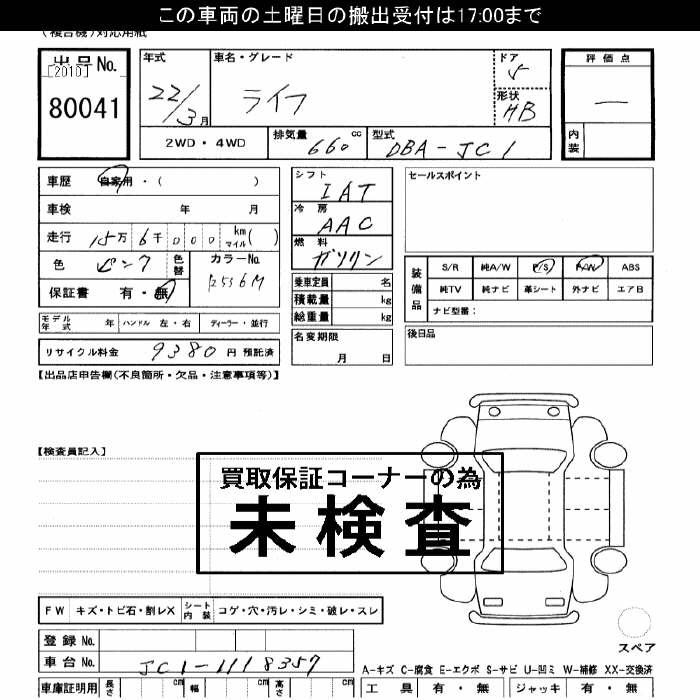 この車両の土曜日の搬出受付は17:00まで
(複合機)対応用紙
出品No. [2010] 80041
年式 22/3月
車名・グレード ライフ
ドア 5
形状 HB
評価点 —
内装
2WD・4WD
排気量 660 cc
型式 DBA-JC1
車歴 自家用・( )
車検 年 月
走行 15万 6千 0 0 0 km マイル ( )
色 ピンク 色替 カラーNo. R556M
保証書 有・無
モデル年式 年 ハンドル 左・右 ディーラー・並行
リサイクル料金 9380 円 預託済
シフト IAT
冷房 AAC
燃料 ガソリン
乗車定員 名
積載量 kg
総重量 kg
名変期限 月 日
セールスポイント
装備品 S/R 純A/W P/S P/W ABS
純TV 純ナビ 革シート 外ナビ エアB
ナビ型番:
後日品
【出品店申告欄(不良箇所・欠品・注意事項等)】
【検査員記入】
買取保証コーナーの為
未検査
FW キズ・トビ石・割レX シート内装 コゲ・穴・汚レ・シミ・破レ・スレ
登録No.
車台No. JC1-1118357
スペア
A-キズ C-腐食 E-エクボ S-サビ U-凹ミ W-補修 XX-交換済
車庫証明用 長さ cm 幅 cm 高さ cm
工具 有・無 ジャッキ 有・無